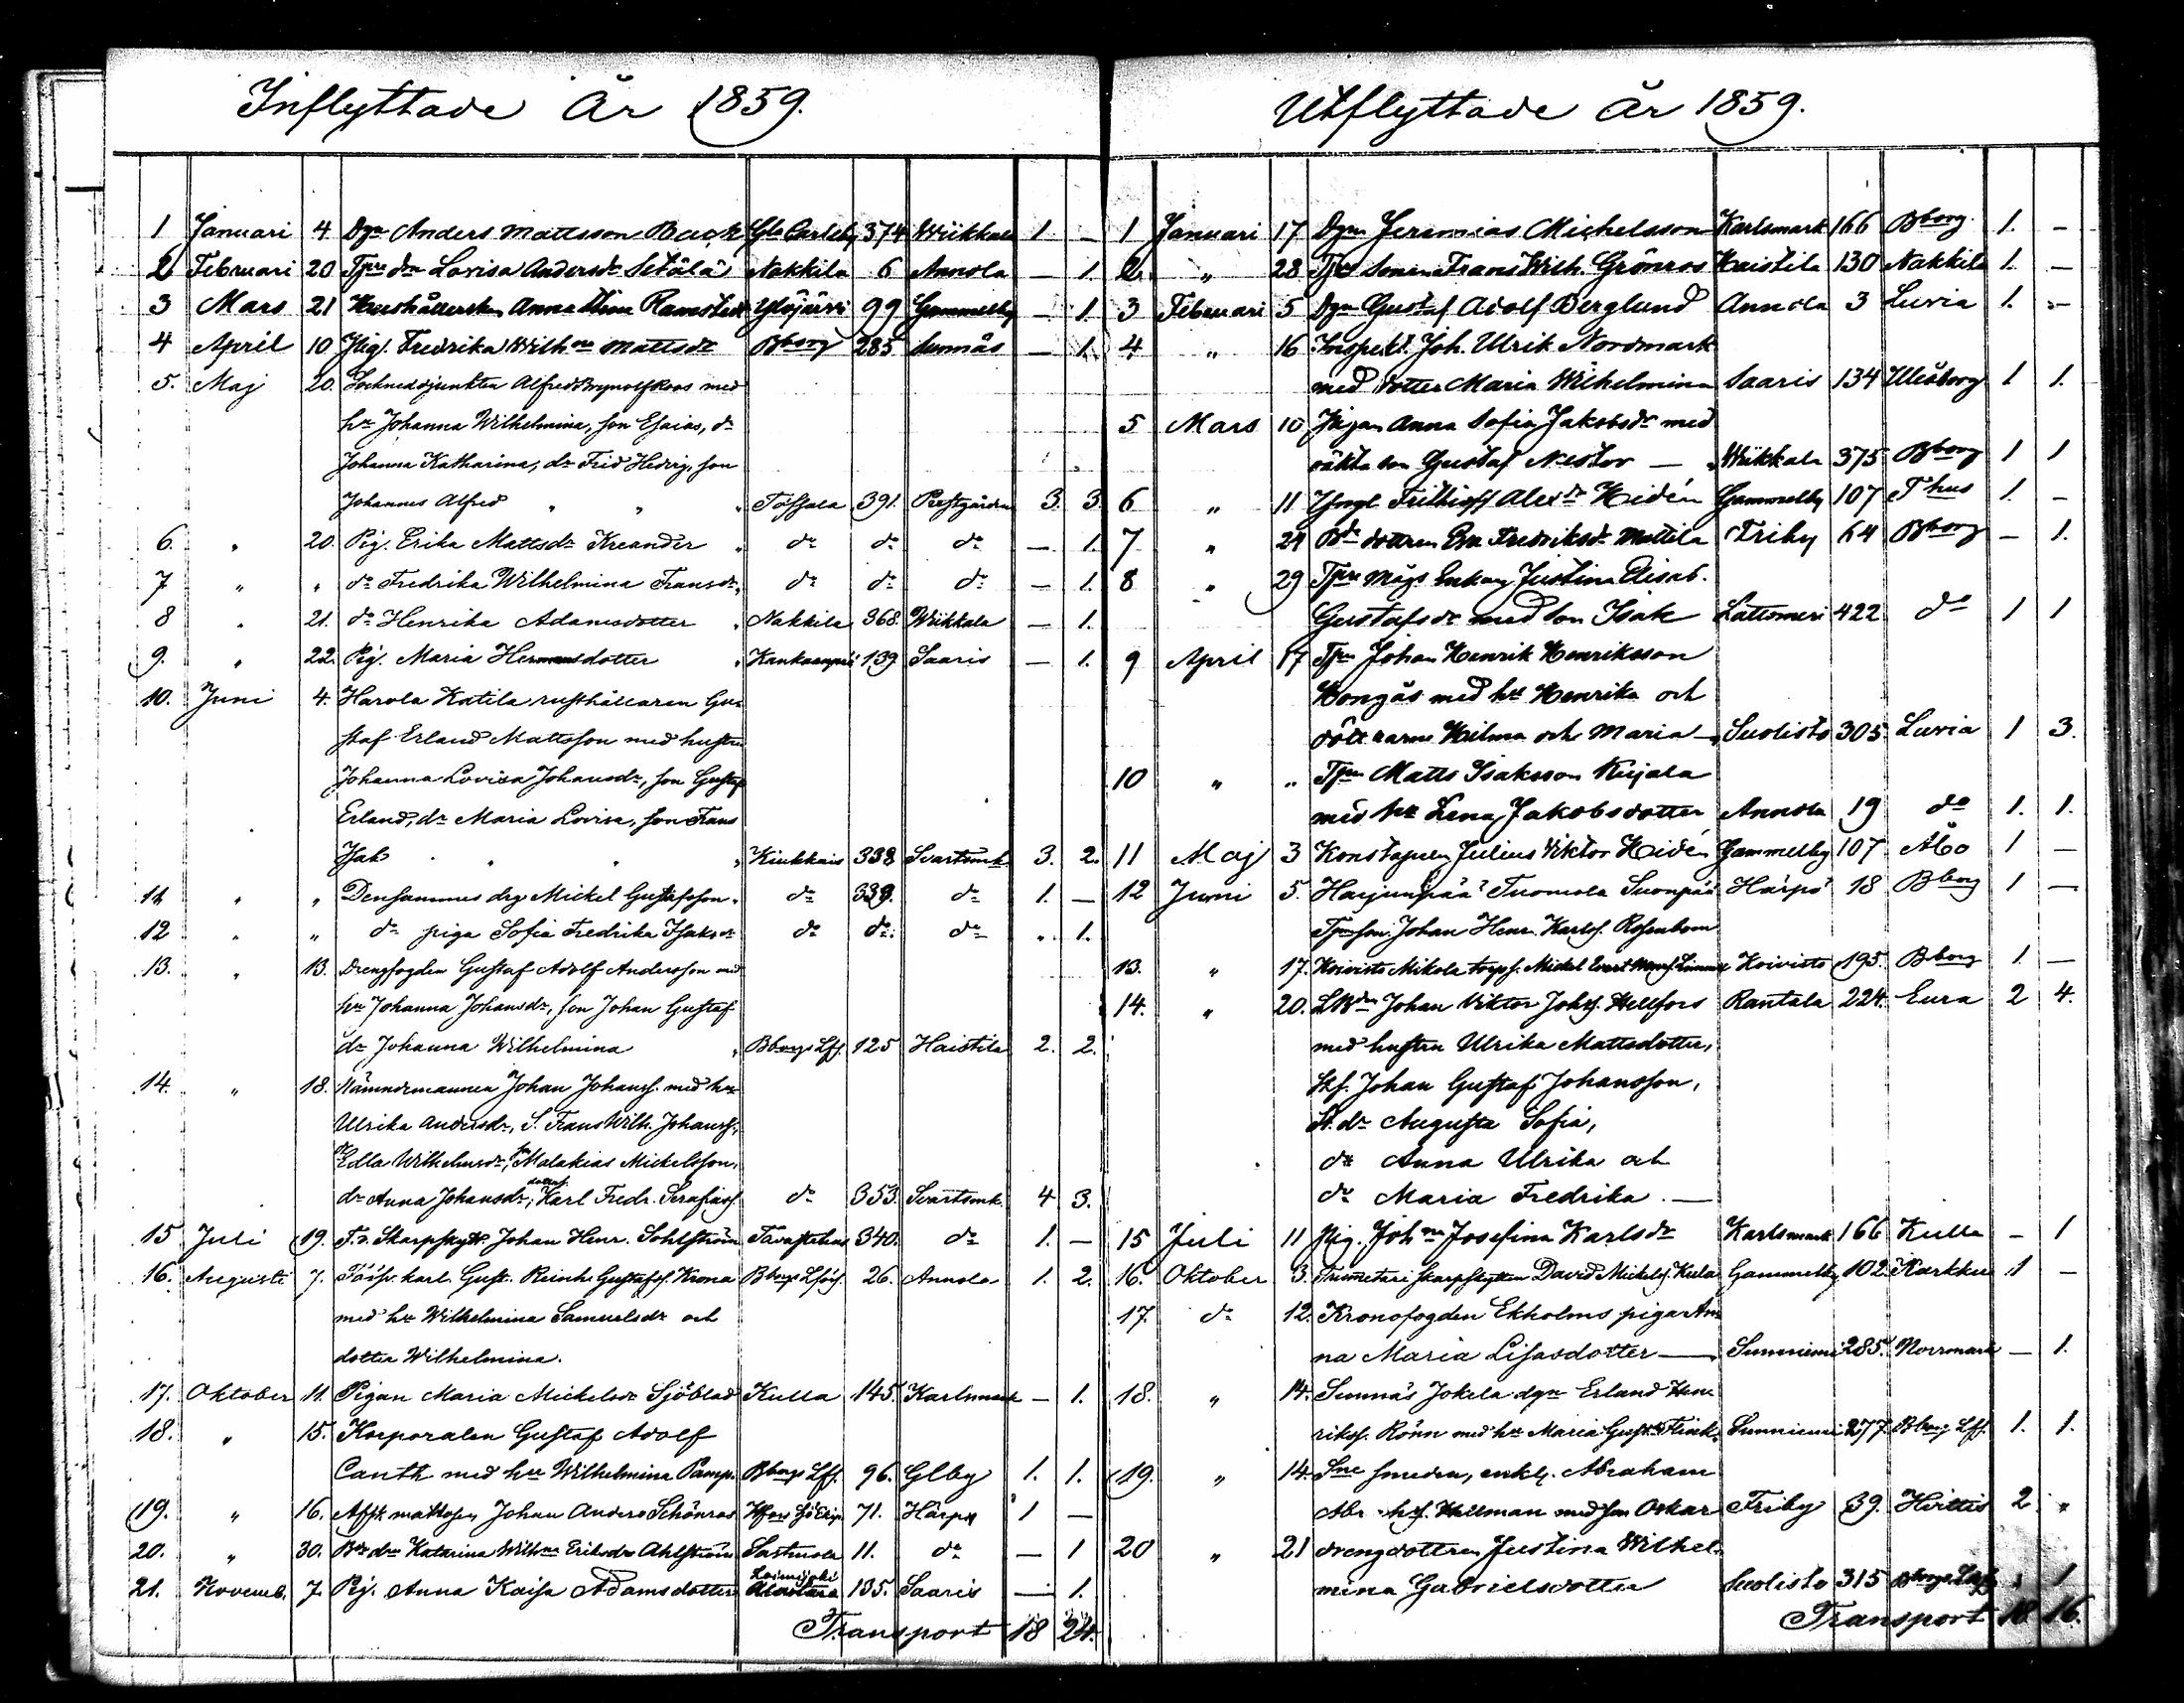 Inflyttade År 1859.
1 Januari 4 Dgn Anders Mattsson Back Gla Carleby 374 Wiikkala 1 -
2 Februari 20 Tprs dn Lovisa Andersdr Setälä Nakkila 6 Annola - 1.
3 Mars 21 Hushållerskan Anna Stina Ramstedt Ylöjärvi 99 Gammelby - 1.
4 April 10 Pig. Fredrika Wilhna Mattsdr Bborg 285 Sunnäs - 1.
5. Maj 20. Sockneadjunkten Alfred Brynolf Roos med
hu Johanna Wilhelmina, son Esaias, dr
Johanna Katharina, dr Frid Hedvig, son
Johannes Alfred " " " Töfsala 391. Prestgården 3. 3.
6. " 20. Pig. Erika Mattsdr Kreander " do do do - 1.
7 " " do Fredrika Wilhelmina Fransdr " do do do - 1.
8 " 21. do Henrika Adamsdotter " Nakkila 368. Wiikkala - 1.
9. " 22. Pig. Maria Hermansdotter " Kankaanpää 139 Saaris - 1.
10. Juni 4. Harola Katila rusthållaren Gu-
staf Erland Mattsson med hustru
Johanna Lovisa Johansdr, son Gustaf
Erland, dr Maria Lovisa, son Frans
Isak " " " Kiukkais 338 Svartsmk 3. 2.
11 " " Densammes drg Mickel Gustafsson " do 339. do 1. -
12 " " do piga Sofia Fredrika Isaksdr do do do " 1.
13. " 13. Drengfogden Gustaf Adolf Andersson med
hu Johanna Johansdr, son Johan Gustaf
dr Johanna Wilhelmina " Bborgs Lfs. 125 Haistila 2. 2.
14. " 18. Nämndemannen Johan Johanss. med hu
Ulrika Andersdr, S. Frans Wilh. Johanss.,
dr Edla Wilhelmsdr, son Malakias Mickelsson,
dr Anna Johansdr, dotters. Karl Fredr. Serafiass. do 353. Svartsmk. 4 3.
15 Juli 19. F.d. Skarpskytt. Johan Henr. Sohlström Tavastehus 340. do 1. -
16. Augusti 7. Förs. karl Gust. Reinh. Gustafss. Krona Bborgs Lförs. 26. Annola 1. 2.
med hu Wilhelmina Samuelsdr och
dotter Wilhelmina.
17. Oktober 11. Pigan Maria Michelsdr Sjöblad Kulla 145. Karlsmark - 1.
18. " 15. Korporalen Gustaf Adolf
Canth med hu Wilhelmina Pamp. Bborgs Lfs. 96. Glby 1. 1.
19. " 16. matrosen Johan Anders Schönros Hfors 71. Härpö 1 -
20. " 30. Katarina Wilhna Eriksdr Ahlström Sastmola 11. do - 1
21. Novemb. 7. Pig. Anna Kaisa Adamsdotter Loimijoki Alastaro 135. Saaris - 1.
Transport 18 24.
Utflyttade År 1859.
1 Januari 17 Dgn Jeremias Michelsson Karlsmark 166 Bborg 1. -
2. " 28 Tprs sonen Frans Wilh. Grönros Haistila 130 Nakkila 1. -
3 Februari 5 Dgn Gustaf Adolf Berglund Annola 3 Luvia 1. -
4 " 16 Inspekt. Joh. Ulrik Nordmark
med dotter Maria Wilhelmina Saaris 134 Uleåborg 1 1.
5 Mars 10 Pigan Anna Sofia Jakobsdr med
oäkta son Gustaf Nestor - Wiikkala 375 Bborg 1 1
6 " 11 Ynglg Frithioff Alexdr Hidén Gammelby 107 Thus 1. -
7 " 24 Bde dottren Eva Fredriksdr Mattila Friby 64 Bborg - 1.
8 " 29 Tprs mågs Enkan Justina Elisab.
Gustafsdr med son Isak Lattomeri 422 do 1 1
9 April 17 Tpn Johan Henrik Henriksson
Hongås med hu Henrika och
döttrarne Hilma och Maria - Suolisto 305 Luvia 1 3.
10 " " Tpn Matts Isaksson Kujala
med hu Lena Jakobsdotter Annola 19 do 1. 1.
11 Maj 3 Konstapeln Julius Viktor Hidén Gammelby 107 Åbo 1 -
12 Juni 5. Harjunpää Tuomola Suonpää Härpö 18 Bborg 1 -
Tprs son Johan Henr. Karlss. Rosenbom
13. " 17. Koivisto Mikola torps. Mickel Evert Koivisto 195. Bborg 1 -
14. " 20. LBden Johan Viktor Johss. Hellfors Rantala 224. Eura 2 4.
med hustru Ulrika Mattsdotter,
Sts. Johan Gustaf Johansson,
St. dr Augusta Sofia,
dr Anna Ulrika och
dr Maria Fredrika. -
15 Juli 11 Pig. Johna Josefina Karlsdr Karlsmark 166 Kulla - 1
16. Oktober 3. skarpskytten David Mickels. Kula Gammelby 102. Karkku 1 -
17. do 12. Kronofogden Ekholms pigan An-
na Maria Lisasdotter - Sunniemi 285. Norrmark - 1.
18. " 14. Sunnäs Jokela dgn Erland Hen-
rikss. Rönn med hu Maria Gustdr Flink. Sunniemi 277. Bborgs Lfs. 1. 1.
19. " 14. Sne smeden, enkl. Abraham
Abr. hss. Hallman med son Oskar Friby 39. Hvittis 2. "
20 " 21 drengdottren Justina Wilhel-
mina Gabrielsdotter Suolisto 315 Bborgs Lfs " 1
Transport 18 16.